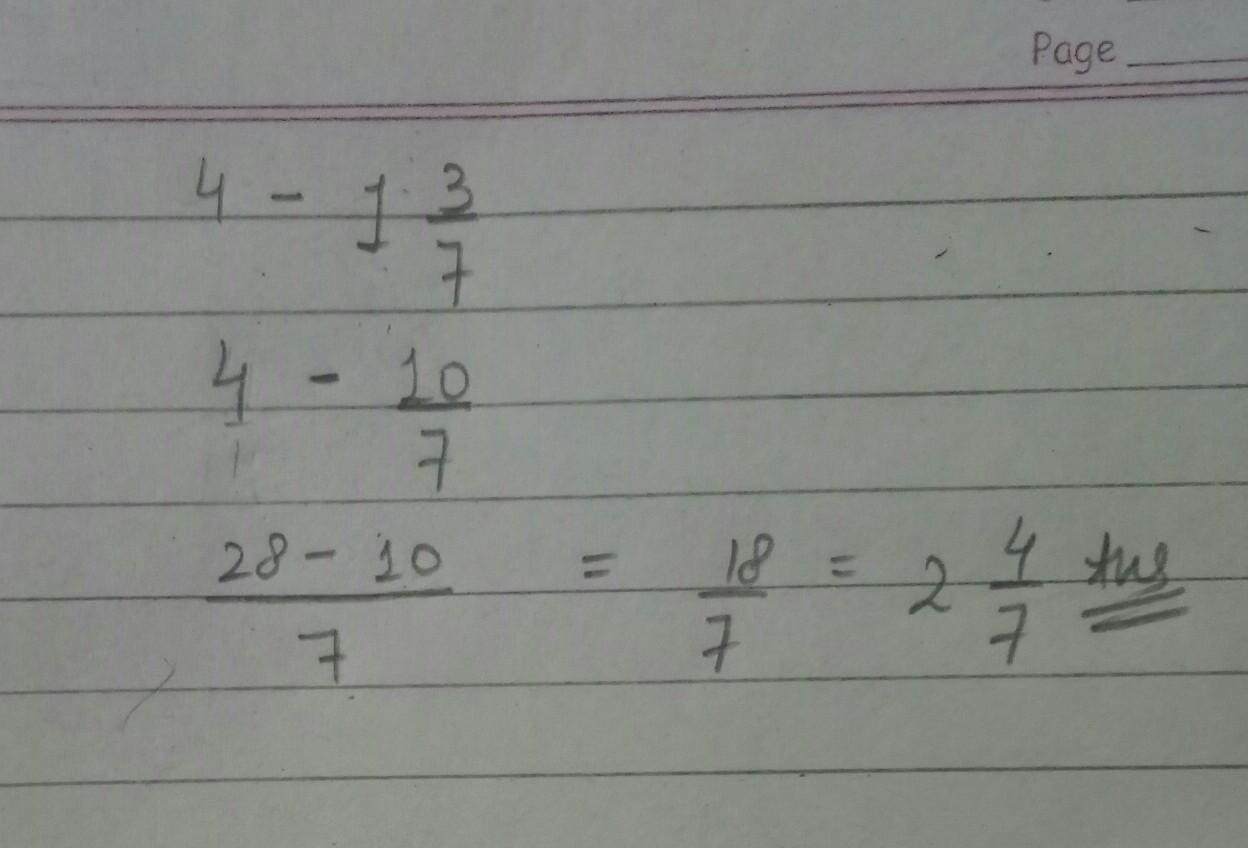 Page
4 - 1 3/7
4/1 - 10/7
28 - 10/7 = 18/7 = 2 4/7 Ans